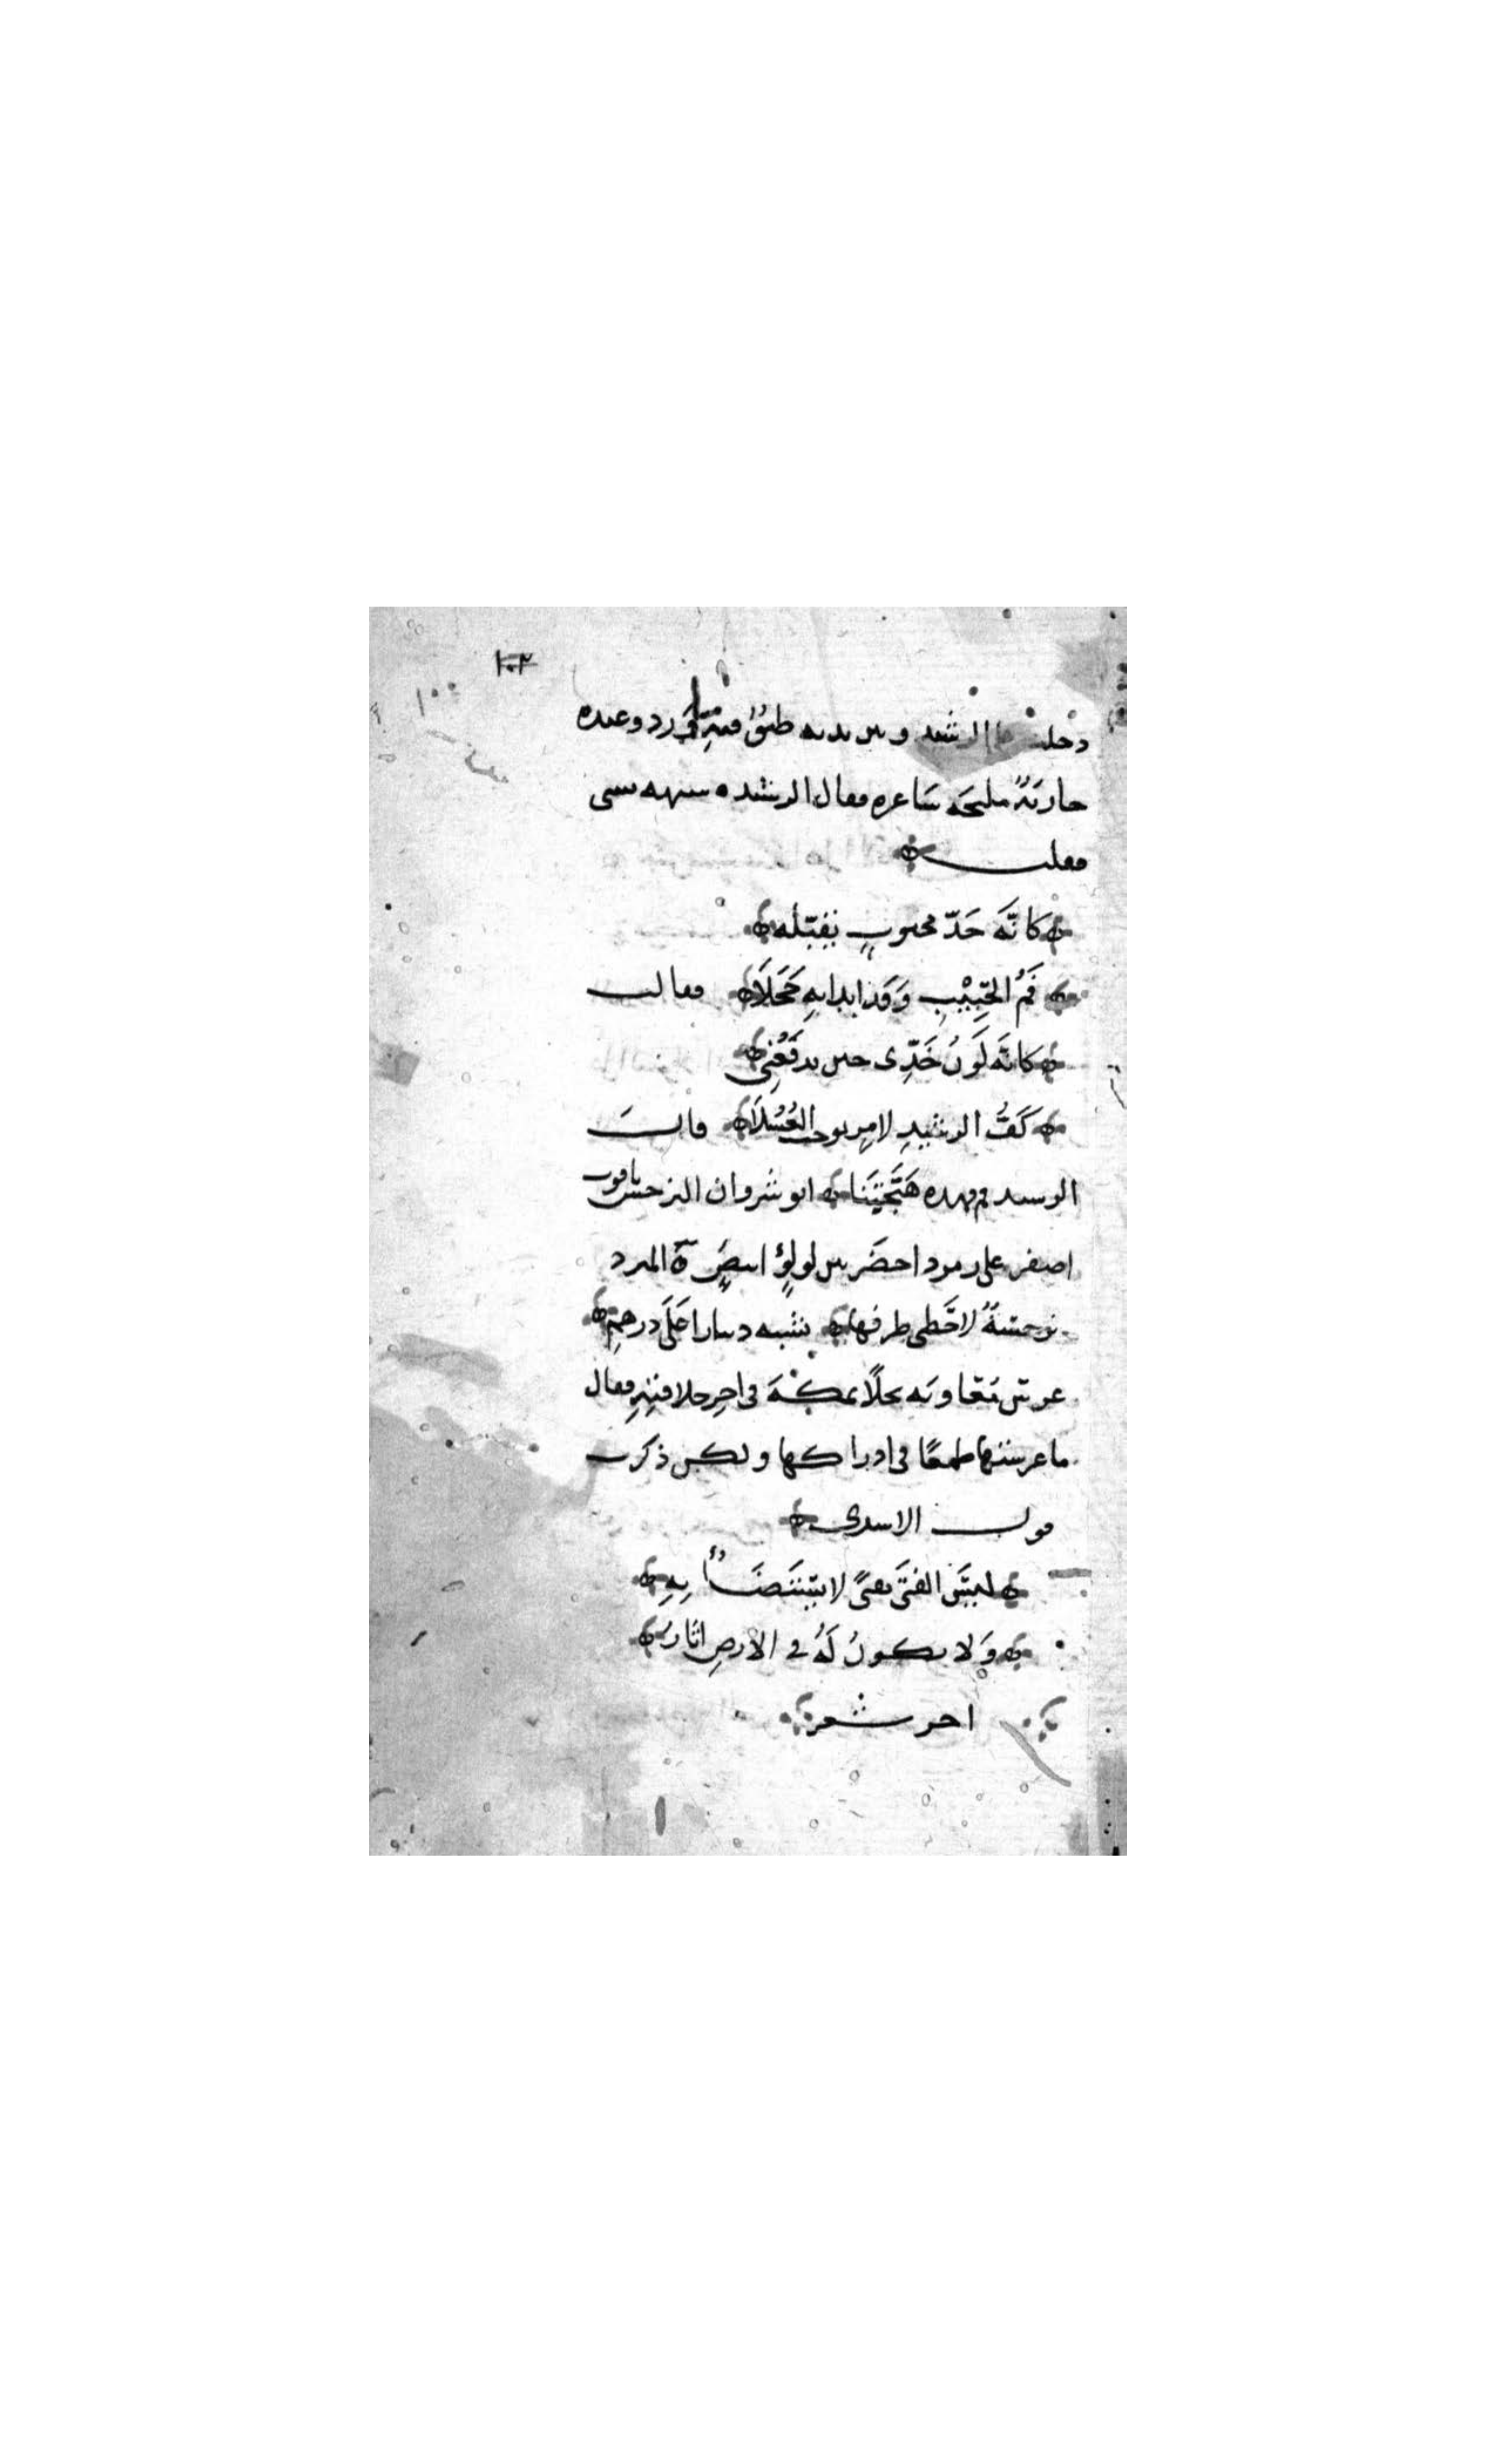 ١٠٢
١٠٠
دخلت على الرشيد وبين يديه طبقٌ فيه ورد وعنده
جاريةٌ مليحة شاعرة فقال الرشيد شبهه بشي
فقلت
كانّه خدّ محبوبٍ يُقبّله
فَمُ الحَبِيْبِ وَقد ابدا بهِ خَجَلَا فقالت
كانّه لَونُ خَدِّى حين يدفَعُنِى
كَفُّ الرشيدِ لامرٍ يوجب الغُسُلَا فالت
الرسيد قم فهذه هَيَّجَتَنا انوشروان النرجس ياقوت
اصفر على زمرد اخضَر بين لولوٍ ابيضٍ المبرد
نرجسةٌ لاحَظَنى طرفها تشبه دينارا عَلَى درهمِ
غرس مُعاويه نخلًا بمكّةَ فى اخِرِ خلافتِهِ فقال
ما غرستها طمعًا فى ادراكها ولكن ذكرت
قول الاسدى
ليسَ الفتَى بفتىً لا يُستَضَاُ بِهِ
وَلا يكونُ لَهُ فى الارضِ اثارُ
اخر شعر